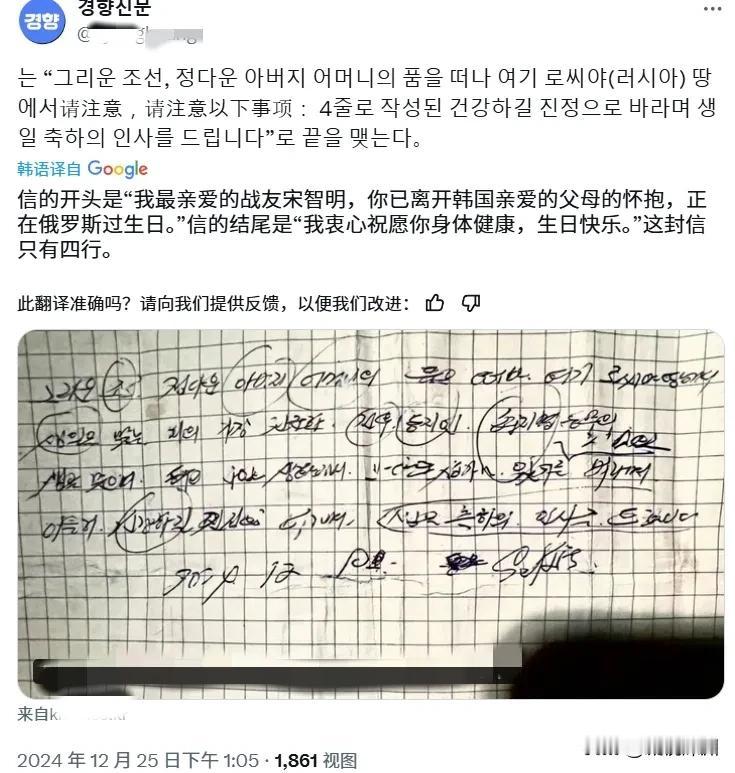 경향신문
@
는 “그리운 조선, 정다운 아버지 어머니의 품을 떠나 여기 로씨야(러시아) 땅
에서请注意，请注意以下事项： 4줄로 작성된 건강하길 진정으로 바라며 생
일 축하의 인사를 드립니다”로 끝을 맺는다。
韩语译自 Google
信的开头是“我最亲爱的战友宋智明，你已离开韩国亲爱的父母的怀抱，正
在俄罗斯过生日。”信的结尾是“我衷心祝愿你身体健康，生日快乐。”这封信
只有四行。
此翻译准确吗？请向我们提供反馈，以便我们改进：
그리운 조선 정다운 아버지 어머니의 품을 떠나 여기 로씨야 땅에서
생일을 맞는 저의 가장 친근한 전우 동지인
건강하길 진정으로 바라며 생일 축하의 인사를 드립니다
来自k
2024 年 12 月 25 日下午 1:05 · 1,861 视图